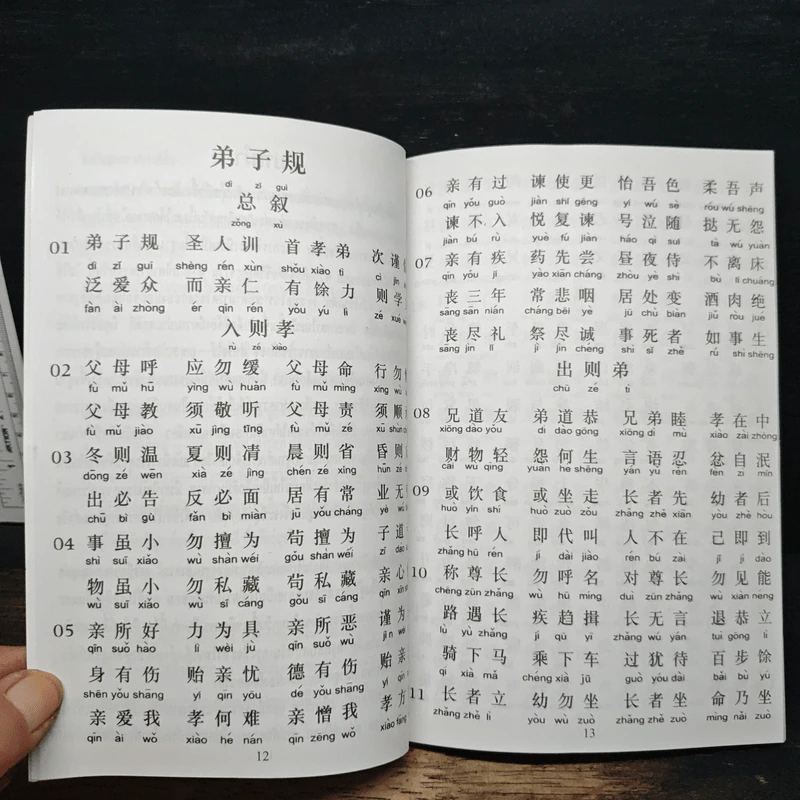 弟子规
dì zǐ guī
总叙
zǒng xù
01 弟子规 圣人训 首孝弟 次谨
dì zǐ guī shèng rén xùn shǒu xiào tì cì jǐn
泛爱众 而亲仁 有馀力 则学
fàn ài zhòng ér qīn rén yǒu yú lì zé xué
入则孝
rù zé xiào
02 父母呼 应勿缓 父母命 行勿
fù mǔ hū yìng wù huǎn fù mǔ mìng xíng wù
父母教 须敬听 父母责 须顺
fù mǔ jiào xū jìng tīng fù mǔ zé xū shùn
03 冬则温 夏则凊 晨则省 昏则
dōng zé wēn xià zé jìng chén zé xǐng hūn zé
出必告 反必面 居有常 业无
chū bì gù fǎn bì miàn jū yǒu cháng yè wú
04 事虽小 勿擅为 苟擅为 子道
shì suī xiǎo wù shàn wéi gǒu shàn wéi zǐ dào
物虽小 勿私藏 苟私藏 亲心
wù suī xiǎo wù sī cáng gǒu sī cáng qīn xīn
05 亲所好 力为具 亲所恶 谨为
qīn suǒ hào lì wèi jù qīn suǒ wù jǐn wèi
身有伤 贻亲忧 德有伤 贻亲
shēn yǒu shāng yí qīn yōu dé yǒu shāng yí qīn
亲爱我 孝何难 亲憎我 孝方
qīn ài wǒ xiào hé nán qīn zēng wǒ xiào fāng
12
06 亲有过 谏使更 怡吾色 柔吾声
qīn yǒu guò jiàn shǐ gēng yí wú sè róu wú shēng
谏不入 悦复谏 号泣随 挞无怨
jiàn bú rù yuè fù jiàn háo qì suí tà wú yuàn
07 亲有疾 药先尝 昼夜侍 不离床
qīn yǒu jí yào xiān cháng zhòu yè shì bù lí chuáng
丧三年 常悲咽 居处变 酒肉绝
sāng sān nián cháng bēi yè jū chù biàn jiǔ ròu jué
丧尽礼 祭尽诚 事死者 如事生
sāng jìn lǐ jì jìn chéng shì sǐ zhě rú shì shēng
出则弟
chū zé tì
08 兄道友 弟道恭 兄弟睦 孝在中
xiōng dào yǒu dì dào gōng xiōng dì mù xiào zài zhōng
财物轻 怨何生 言语忍 忿自泯
cái wù qīng yuàn hé shēng yán yǔ rěn fèn zì mǐn
09 或饮食 或坐走 长者先 幼者后
huò yǐn shí huò zuò zǒu zhǎng zhě xiān yòu zhě hòu
长呼人 即代叫 人不在 己即到
zhǎng hū rén jí dài jiào rén bú zài jǐ jí dào
10 称尊长 勿呼名 对尊长 勿见能
chēng zūn zhǎng wù hū míng duì zūn zhǎng wù xiàn néng
路遇长 疾趋揖 长无言 退恭立
lù yù zhǎng jí qū yī zhǎng wú yán tuì gōng lì
骑下马 乘下车 过犹待 百步馀
qí xià mǎ chéng xià jū guò yóu dài bǎi bù yú
11 长者立 幼勿坐 长者坐 命乃坐
zhǎng zhě lì yòu wù zuò zhǎng zhě zuò mìng nǎi zuò
13